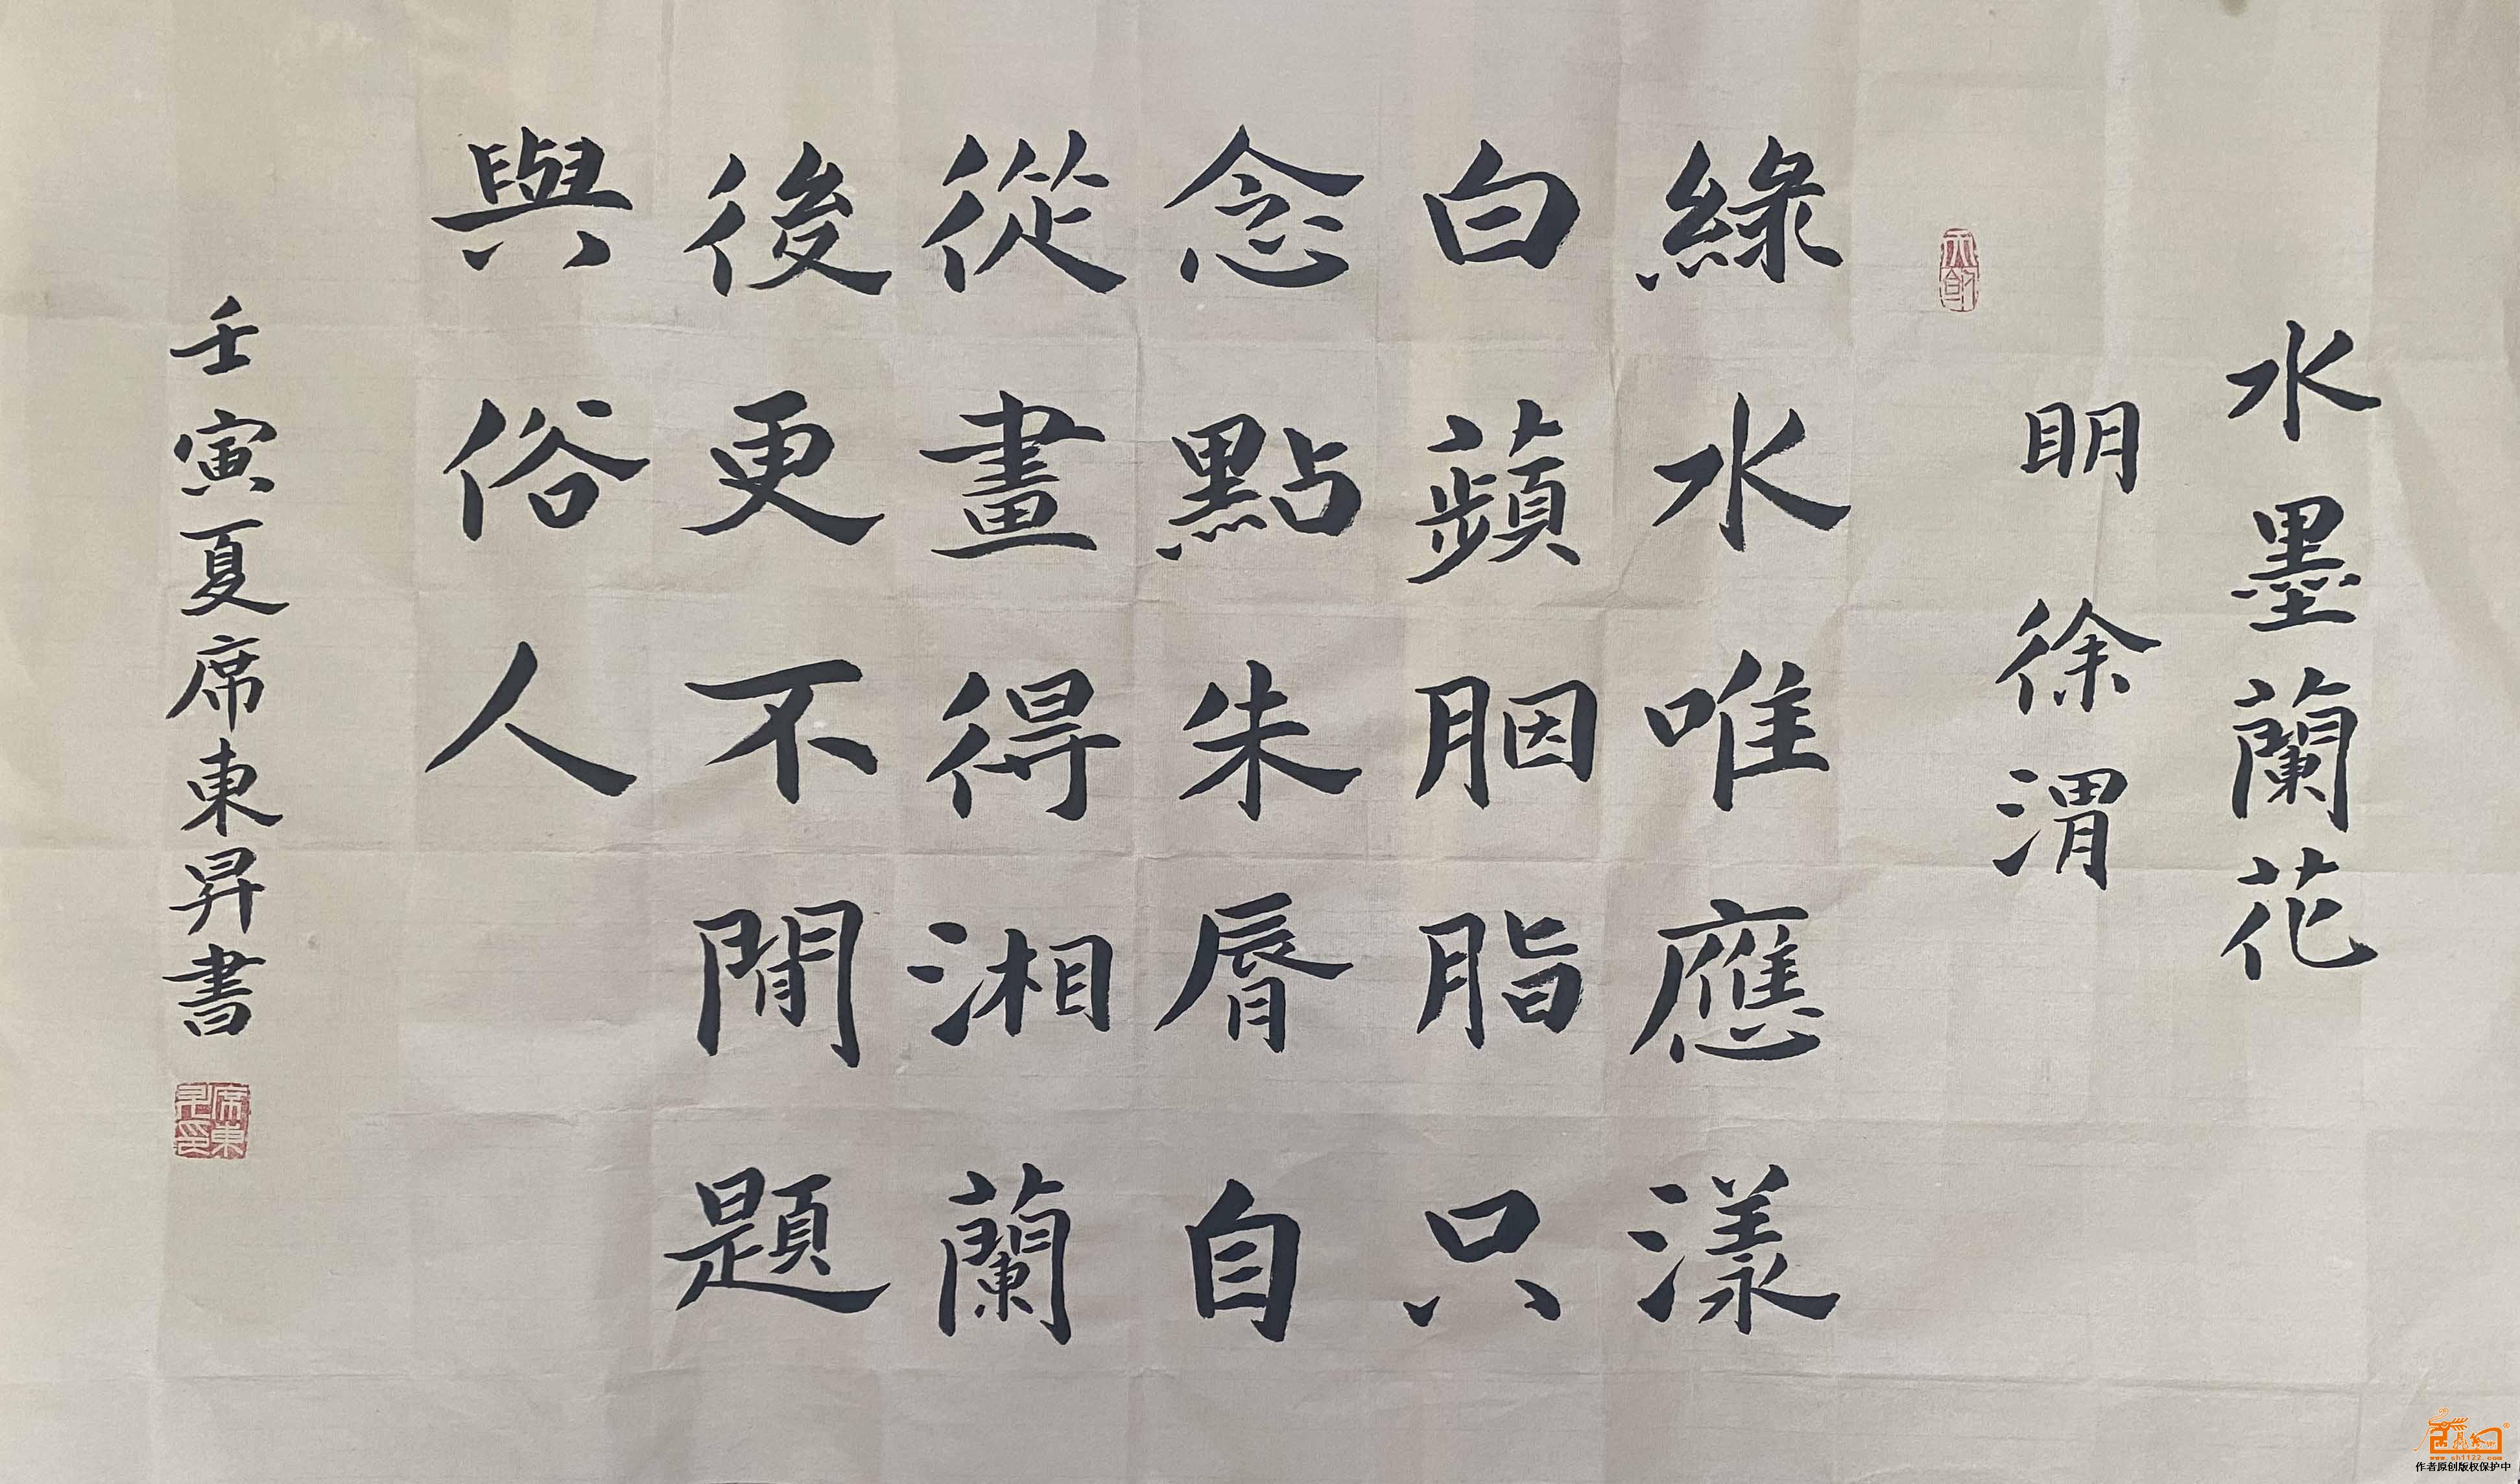 水墨蘭花
明 徐渭
綠水唯應漾
白蘋胭脂只
念點朱脣自
從畫得湘蘭
後更不閒題
與俗人
壬寅夏席東昇書
席東
昇印
www.sh1122.com
作者原创版权保护中